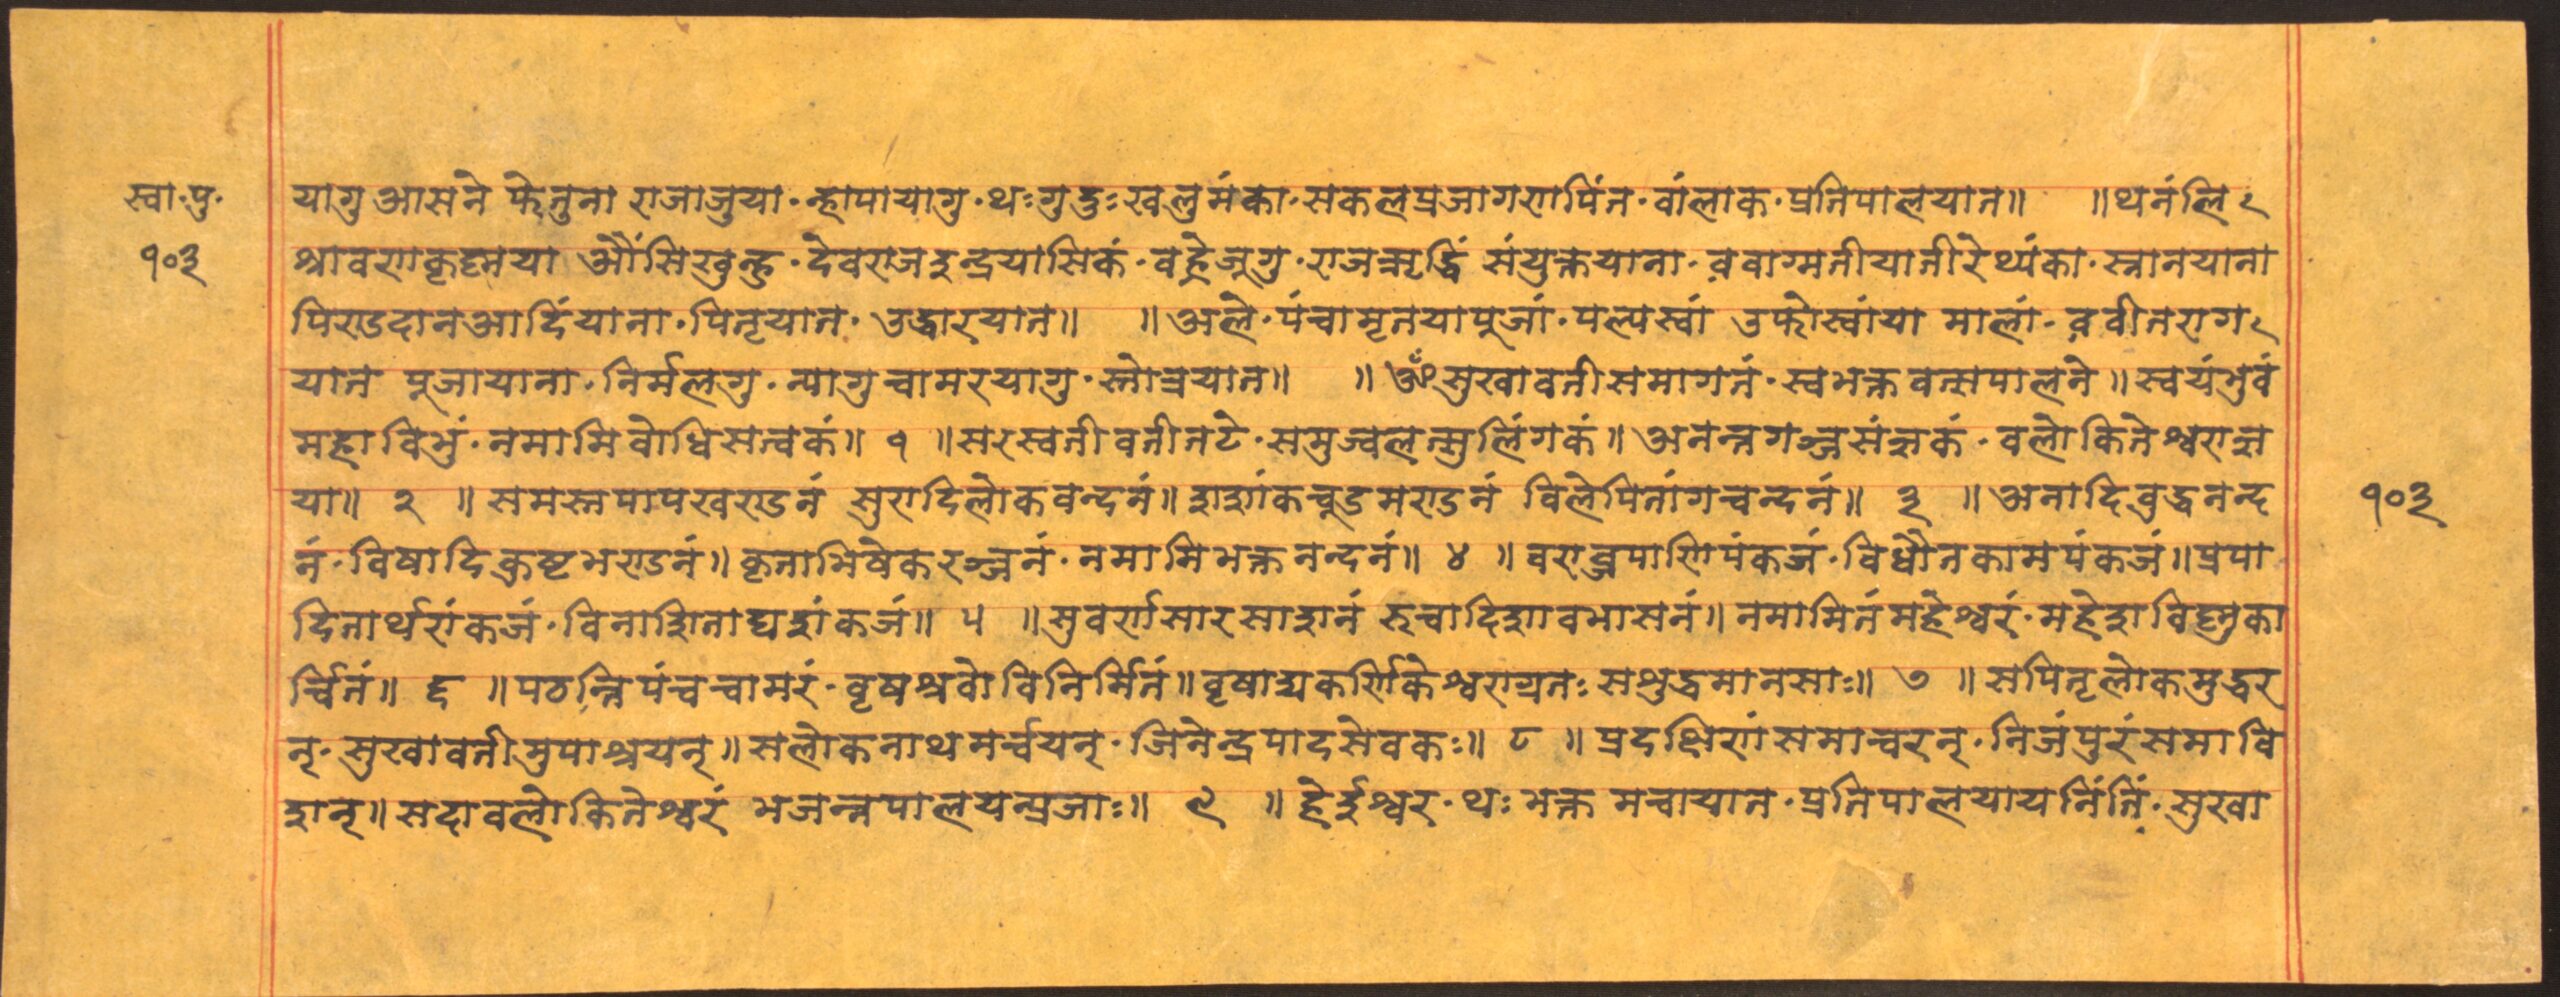 स्वा·पु·
१०३
यागु आसने फेतुना राजाजुया·न्हापायागु·थःगुदुःखलुमंका·सकलप्रजागणपिंत·वांलाक·प्रतिपालयात॥ ॥थनंलि
श्रावणकृष्णया औंसिखुन्हु·देवराजइन्द्रयासिकं·वह्रेजूगु·राजऋद्धिं संयुक्तयाना·व वाग्मतीयातीरेथ्यंका·स्नानयाना
पिण्डदानआदिंयाना·पितृयात·उद्धारयात॥ ॥अले·पंचामृतयापूजां·पल्पस्वां उफोस्वांया मालां·व वीतराग
यात पूजायाना·निर्मलगु·न्यागुचामरयागु·स्तोत्रयात॥ ॥ॐसुखावतीसमागतं·स्वभक्तवत्सपालने॥स्वयंभुवं
महाविभुं·नमामिवोधिसत्वकं॥ १ ॥सरस्वतीवतीतटे·समुज्वलत्सुलिंगकं॥अनन्तगञ्जसंज्ञकं·वलोकितेश्वराज्ञ
या॥ २ ॥समस्तपापखण्डनं सुरादिलोकवन्दनं॥शशांकचूडमण्डनं विलेपितांगचन्दनं॥ ३ ॥अनादिवुद्धनन्द
नं·विषादिकष्टभण्डनं॥कृताभिषेकरञ्जनं·नमामिभक्तनन्दनं॥ ४ ॥वराब्जपाणिपंकजं·विधौतकामपंकजं॥प्रपा
दितार्थशंकजं·विनाशिताघशंकजं॥ ५ ॥सुवर्णसारसाशनं रुचादिशावभासनं॥नमामितंमहेश्वरं·महेशविष्णुका
र्च्चितं॥ ६ ॥पठन्तिपंचचामरं·वृषश्रवोविनिर्मितं॥वृषाद्यकर्णिकेश्वराग्रतः सशुद्धमानसाः॥ ७ ॥सपितृलोकमुद्धर
न्·सुखावतीमुपाश्रयन्॥सलोकनाथमर्च्चयन्·जिनेन्द्रपादसेवकः॥ ८ ॥प्रदक्षिणंसमाचरन्·निजंपुरंसमावि
शन्॥सदावलोकितेश्वरं भजन्नपालयन्प्रजाः॥ ९ ॥हेईश्वर·थःभक्त मचायात·प्रतिपालयायनिंतिं·सुखा
१०३